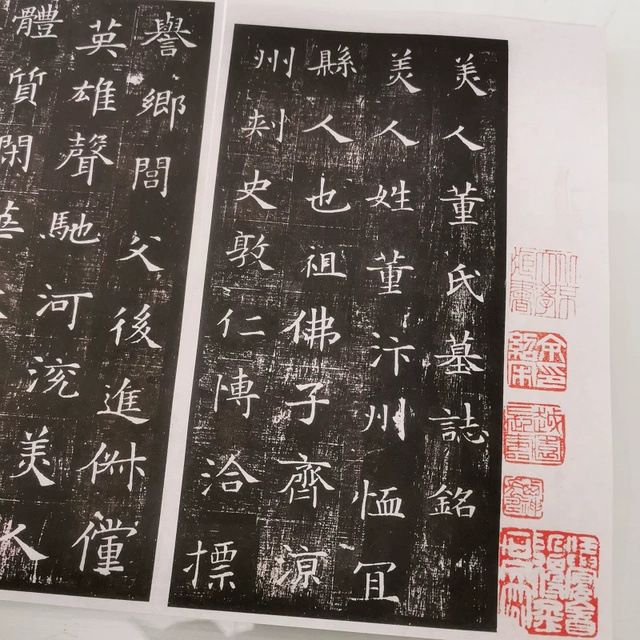 美人董氏墓誌銘
美人姓董汴州恤冝
縣人也祖佛子齊涼
州刺史敦仁博洽標
譽鄉閭父後進俶儻
英雄聲馳河兗美人
體質閑華